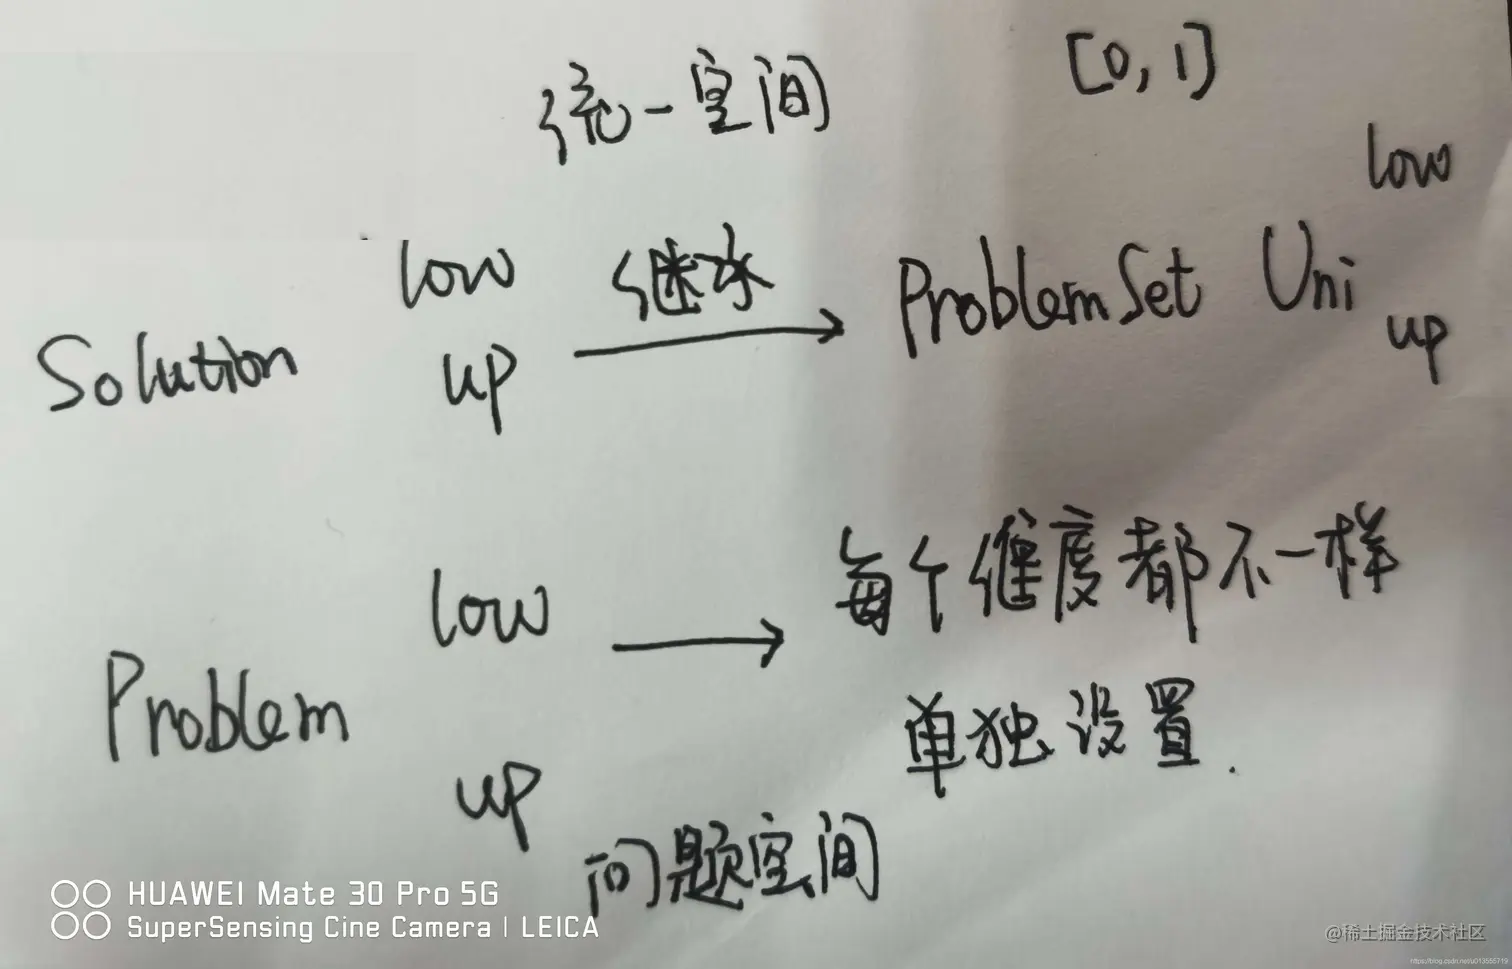 统一空间 [0,1]
low
low 继承 ProblemSet Uni
Solution up up
low 每个维度都不一样
Problem 单独设置.
up
问题空间
HUAWEI Mate 30 Pro 5G
SuperSensing Cine Camera | LEICA
@稀土掘金技术社区